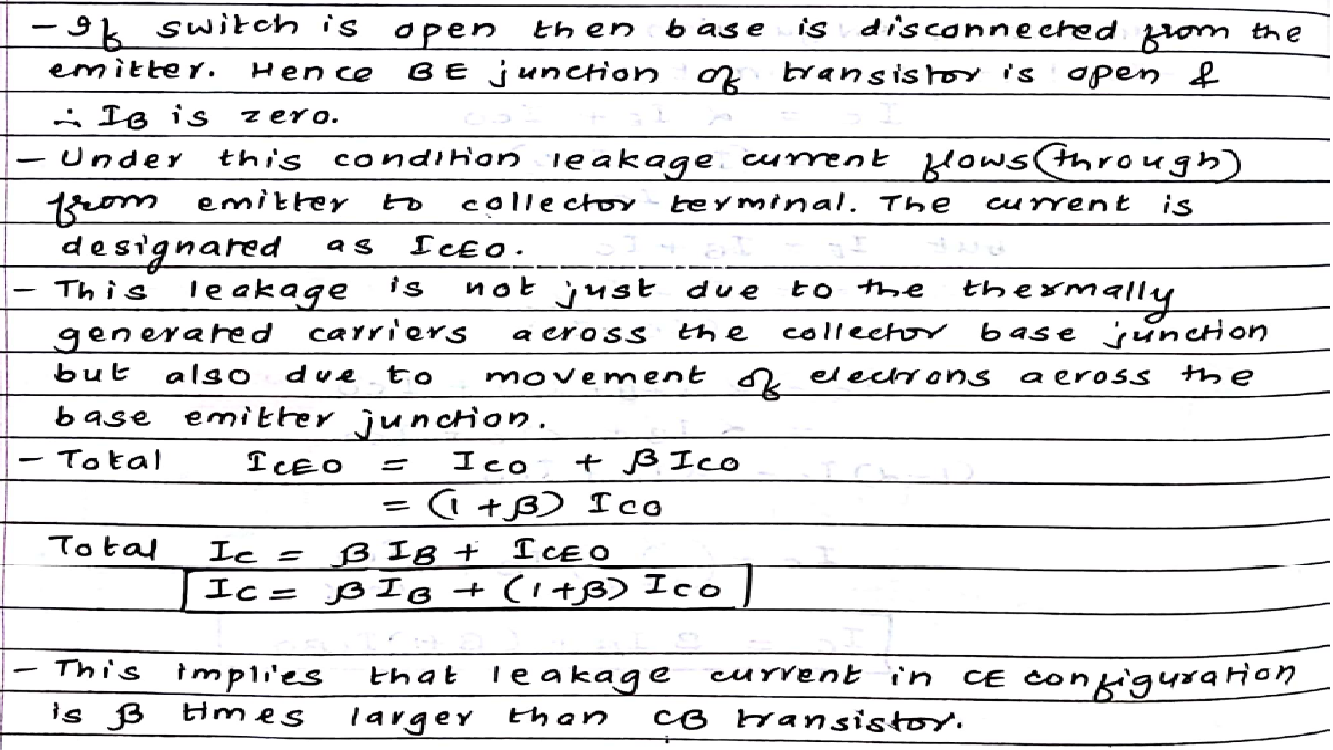 - If switch is open then base is disconnected from the
emitter. Hence BE junction of transistor is open &
∴ IB is zero.
- Under this condition leakage current flows (through)
from emitter to collector terminal. The current is
designated as ICEO.
- This leakage is not just due to the thermally
generated carriers across the collector base junction
but also due to movement of electrons across the
base emitter junction.
- Total ICEO = ICO + βICO
= (1+β) ICO
Total IC = βIB + ICEO
IC = βIB + (1+β) ICO
- This implies that leakage current in CE configuration
is β times larger than CB transistor.